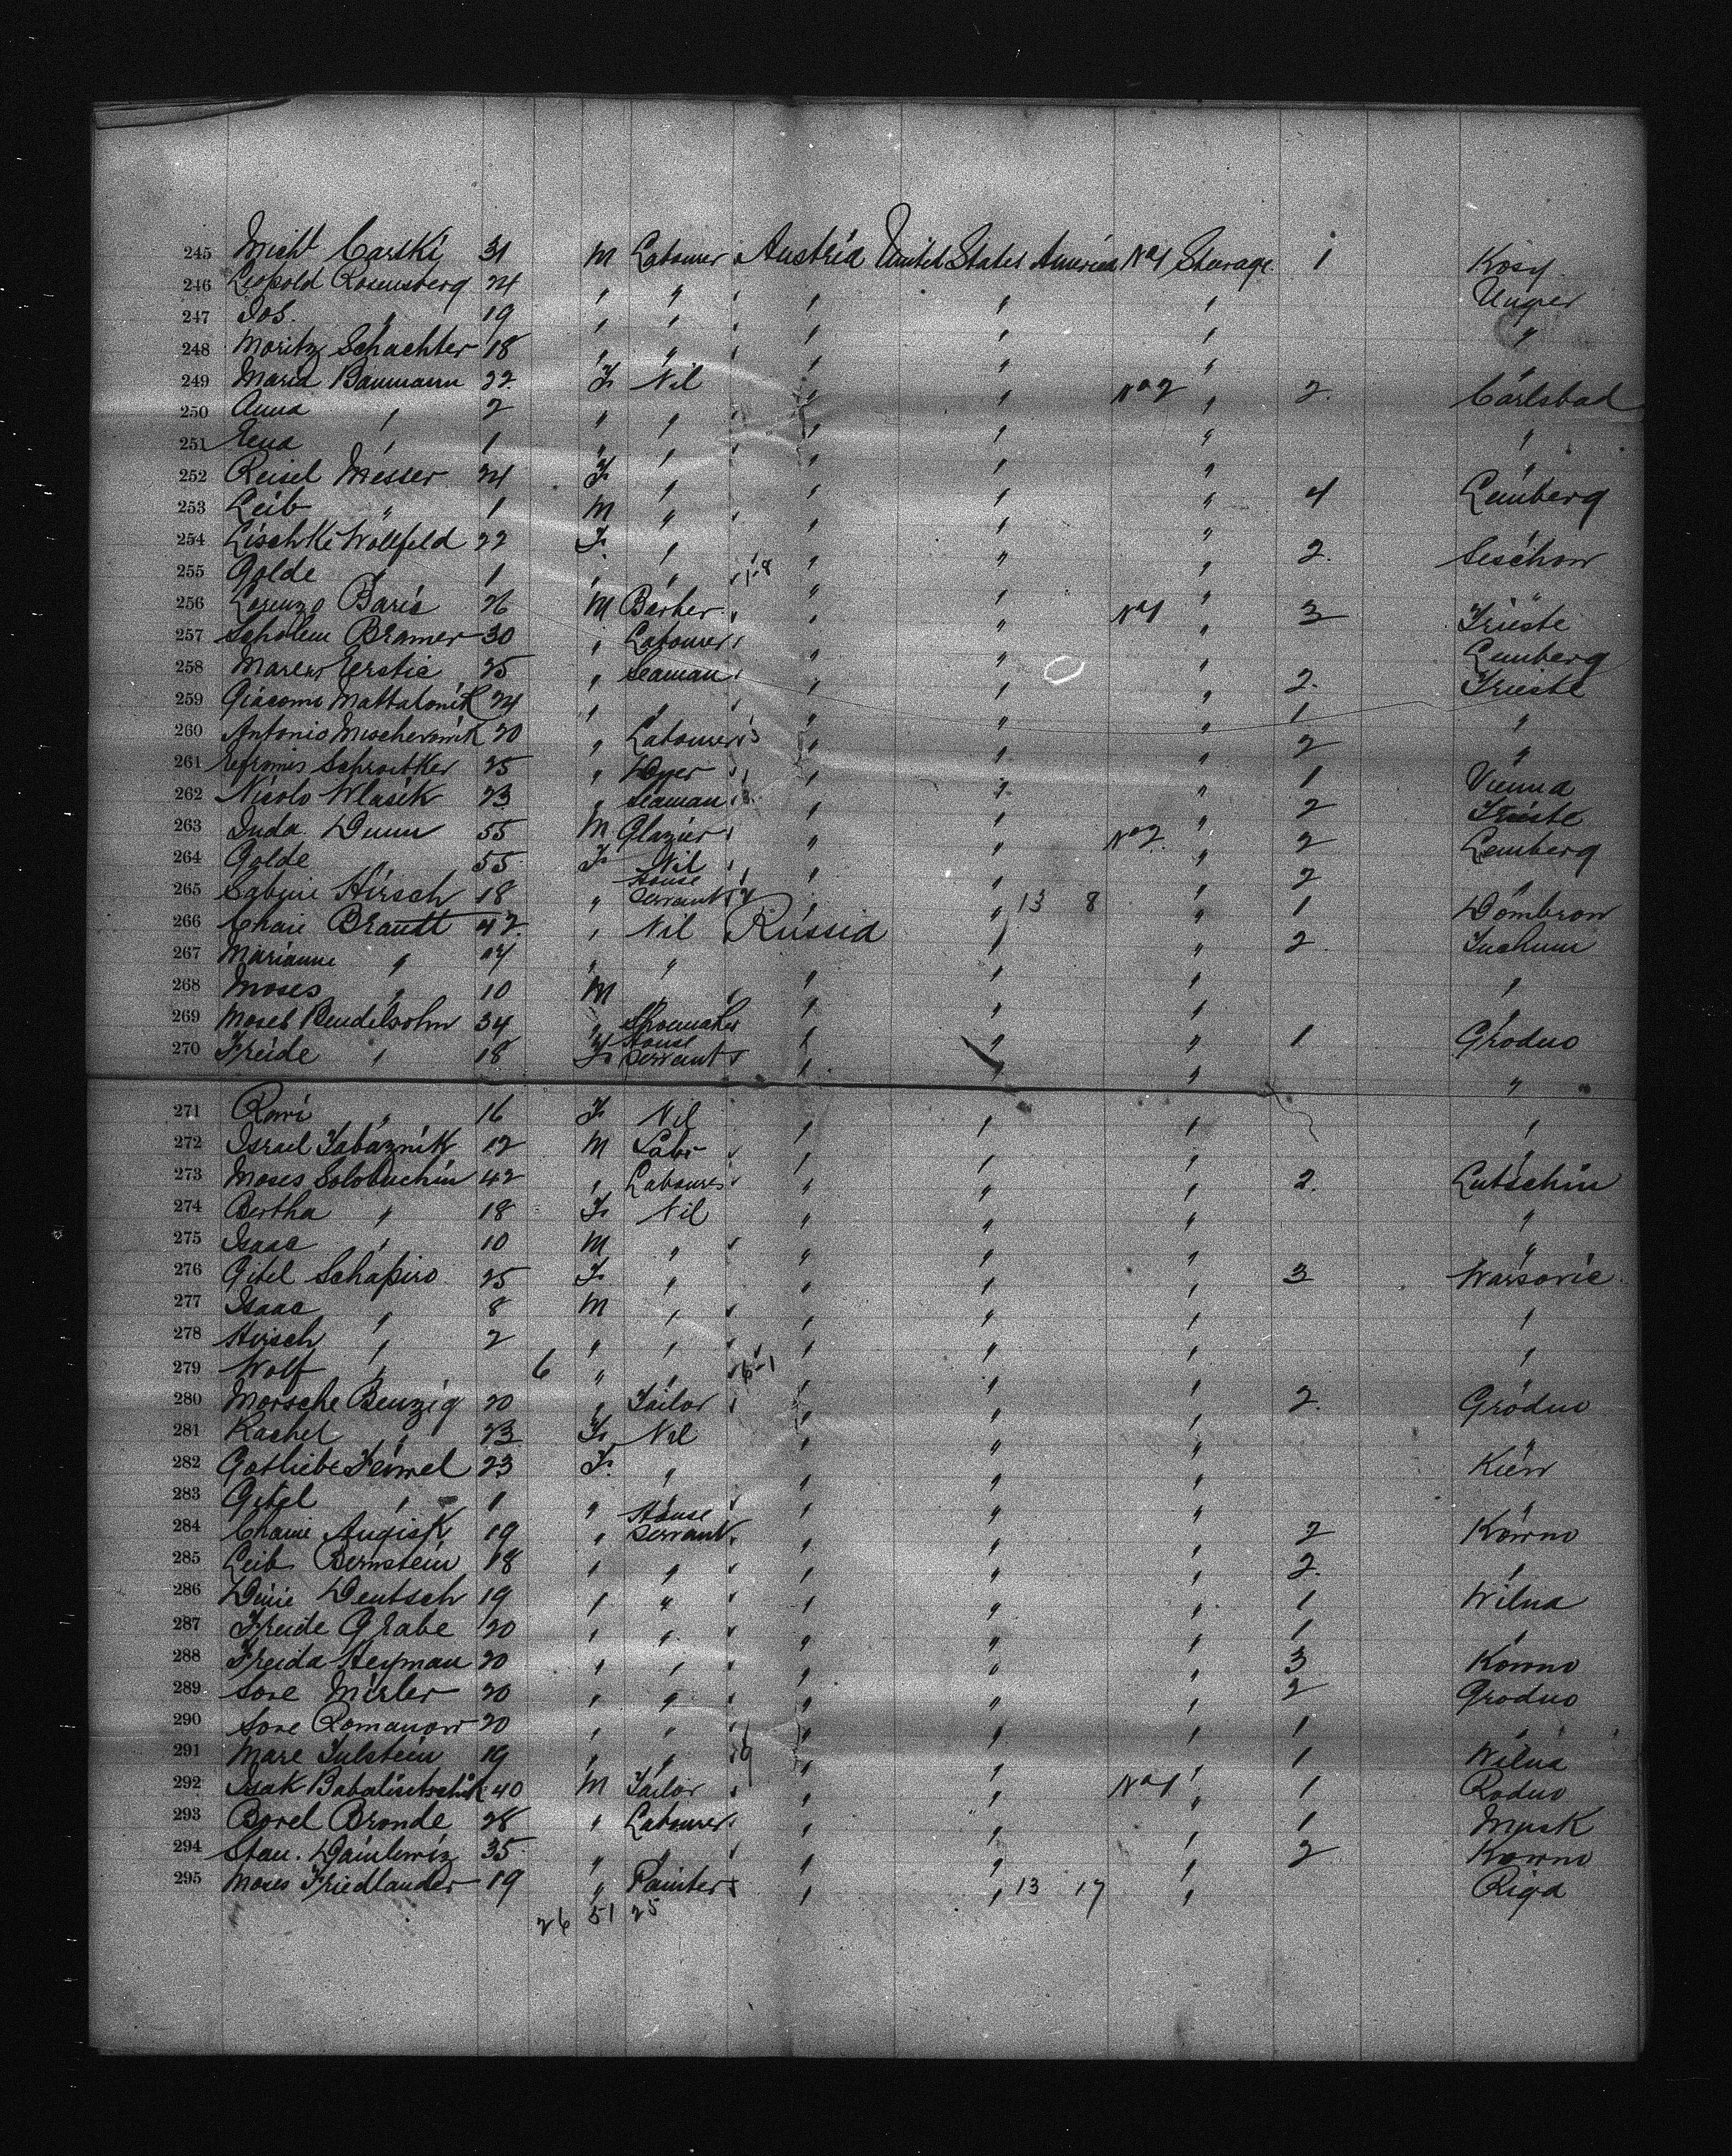 245 Mich Carski 31 M Labourer Austria United States America No 1 Steerage 1 Kosy
246 Leopold Rosensberg 24 " " " " " Unger
247 Jos. " 19 " " " " "
248 Moritz Schachter 18 " " " " " "
249 Maria Baumann 22 F Nil " " No 2 " 2 Carlsbad
250 Anna " 2 " " " " " "
251 " 1 " " " " " "
252 Reisel Messer 24 F " " " " 4 Lemberg
253 Leib " 1 M " " " "
254 Lischke Wollfeld 22 F " " " " 2 Seschow
255 Golde " 1 " " " " " "
256 Lorenzo Baric 26 M Barber " " No 1 " 3 Trieste
257 Scholem Bramer 30 " Labourer " " " Lemberg
258 Marcus Cerstic 25 " Seaman " " " 2 Trieste
259 Giacomo Mattalonik 24 " " " " " 1 "
260 Antonio 20 " Labourer " " " 2 "
261 Schroitker 25 " Dyer " " " 1 Vienna
262 Nicolo Wlasik 23 " Seaman " " " 2 Trieste
263 Juda Dunn 55 M Glazier " " No 2 " 2 Lemberg
264 Golde 55 F Nil " " " 2 "
265 Sabine Hirsch 18 " House Servant " " 13 8 " 1 Dombrow
266 Chaie Brandt 42 " Nil Russia " " 2 Tuchum
267 Marianne " 14 " " " " " "
268 Moses " 10 M " " " " "
269 Moses Bendelsohn 34 " Shoemaker " " " 1 Grodno
270 Freide " 18 F House Servant " " " "
271 " 16 F Nil " " " "
272 Israel Tabaznik 12 M Labr " " " "
273 Moses Solobuchin 42 " Labourer " " " 2 Lutschin
274 Bertha " 18 F Nil " " " "
275 Isaac " 10 M " " " " "
276 Gitel Schapiro 25 F " " " " 3 Warsovie
277 Isaac " 8 M " " " " "
278 Hirsch " 2 " " " " " "
279 Wolf " 6 " " 6-1 " " "
280 Morsche Benzig 20 " Tailor " " " 2 Grodno
281 Rachel " 23 F Nil " " " "
282 Gotliebe 23 F " " " " Kiew
283 Gitel " 1 " " " " "
284 Chaine Augisk 19 " House Servant " " " 2 Kowno
285 Leib Bernstein 18 " " " " " 2 "
286 Deutsch 19 " " " " " 1 Wilna
287 Freide Grabe 20 " " " " " 1 "
288 Freida Heyman 20 " " " " " 3 Kowno
289 Sore Misler 20 " " " " " 2 Grodno
290 Sore Romanow 20 " " " " " 1 "
291 Mare Tulstein 19 " " " " " 1 Wilna
292 Isak 40 M Tailor " " No 1 " 1 Rodno
293 Borel Bronde 28 " Labourer " " " 1 Minsk
294 Stan. Dainlewiz 35 " " " " " 2 Kowno
295 Moses Friedlander 19 " Painter " " 13 17 " Riga
26 51 25